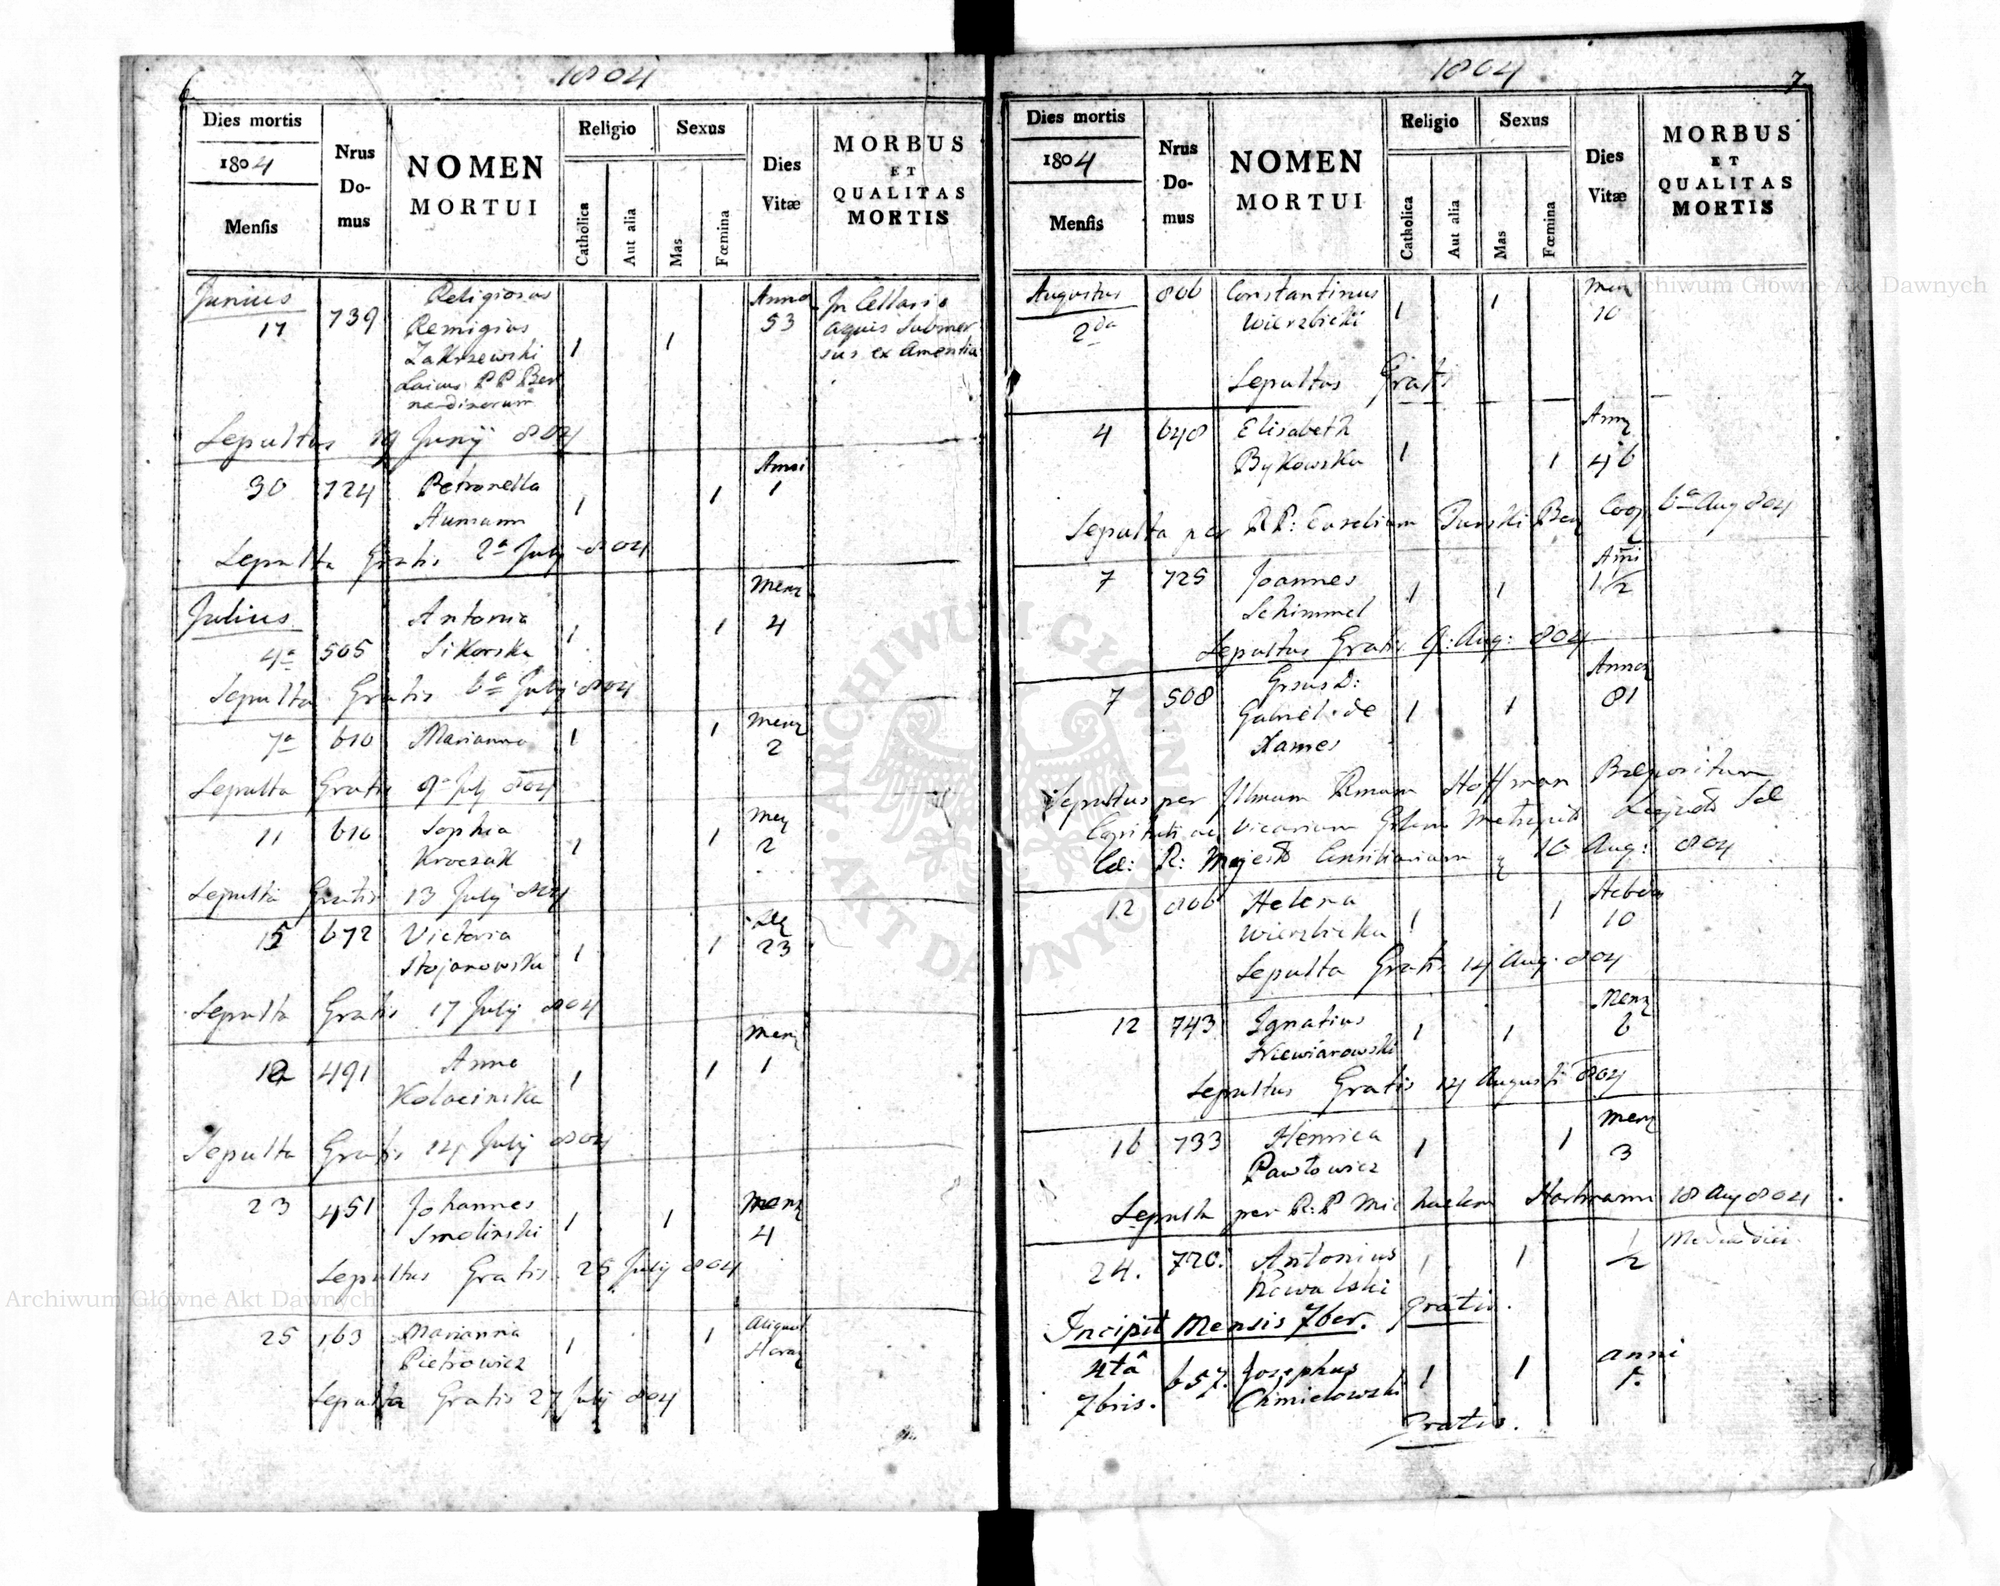 6
1804
Dies mortis
1804
Mensis
Nrus Do- mus
NOMEN
MORTUI
Religio
Catholica
Aut alia
Sexus
Mas
Fœmina
Dies
Vitæ
MORBUS
ET
QUALITAS
MORTIS
Junius 739 Religiosus Anno In Cellario
17 Remigius 1 1 53 aquis Submer
Zakrzewski sus ex Amentia
Laicus PP Ber
nardinorum
Sepultus 19 Junij 804
30 724 Petronella 1 1 Anni 1
Aumann
Sepulta Gratis 2ª July 804
Julius Antonia 1 1 Menz
4ª 505 Sikorska 4
Sepulta Gratis 6ª July 804
7ª 610 Marianna 1 1 Menz 2
Sepulta Gratis 9ª July 804
11 610 Sophia 1 1 2
Kroczak
Sepulta Gratis 13 July 804
15 672 Victoria 1 1 23
Stojanowska
Sepulta Gratis 17 July 804
12 491 Anna 1 1 Menz 1
Kolacinska
Sepulta Gratis 14 July 804
23 451 Johannes 1 1 Menz 4
Smolinski
Sepultus Gratis 25 July 804
25 163 Marianna 1 1 Aliquot
Pietrowicz Horaz
Sepulta Gratis 27 July 804
1804
7
Dies mortis
1804
Mensis
Nrus Do- mus
NOMEN
MORTUI
Religio
Catholica
Aut alia
Sexus
Mas
Fœmina
Dies
Vitæ
MORBUS
ET
QUALITAS
MORTIS
Augustus 806 Constantinus 1 1 Menz 10
2da Wierzbicki
Sepultus Gratis
4 648 Elisabeth 1 1 Annz
Bykowska 46
Sepulta per R.P: Aurelium Ber Coop 6ª Aug 804
7 725 Joannes 1 1 Anni 1/2
Schimmel
Sepultus Gratis 9: Aug: 804
7 508 Grsus D: 1 1 Annoz 81
Gabriel de
Xames
Sepultus per Illmum Rmum Hoffman Præpositum
Capituli ac Vicarium
R: Consiliarium 10 Aug: 804
12 806 Helena 1 1 10
Wierzbicka
Sepulta Gratis 14 Aug. 804
12 743 Ignatius 1 1 Menz 6
Niewiarowski
Sepultus Gratis 14 Augusti 804
16 733 Henrica 1 1 Menz 3
Pawłowicz
Sepulta per R:P Michaelem Hartmann 18 Aug 804
24. 720. Antonius 1 1 1/2
Kowalski
gratis.
Incipit Mensis 7ber.
4tâ 657. Josephus 1 1 anni 1.
7bris. Chmielowski
gratis.
Archiwum Główne Akt Dawnych
Archiwum Główne Akt Dawnych
ARCHIWUM GŁÓWNE AKT DAWNYCH